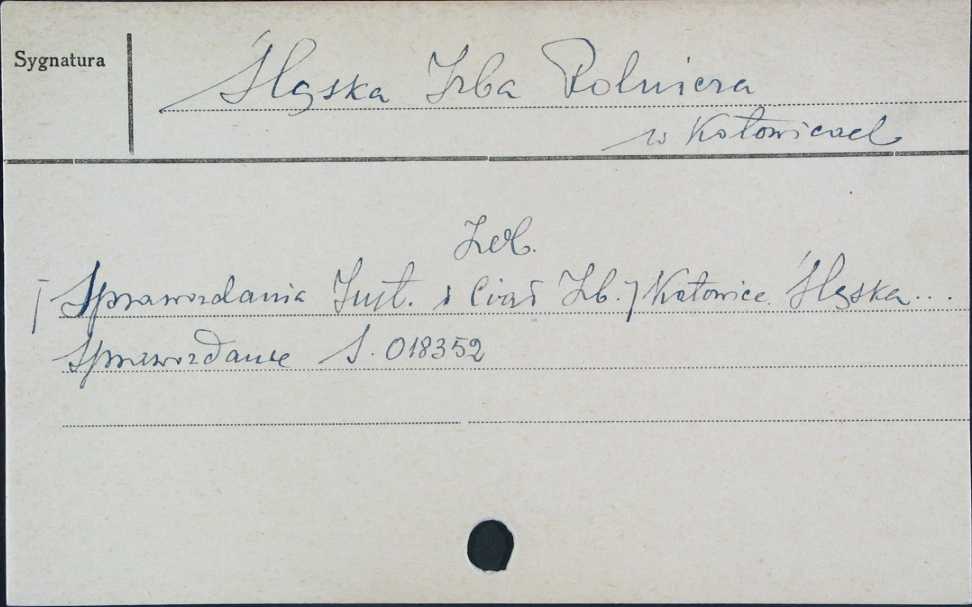 Sygnatura
Śląska Izba Rolnicza
w Katowicach
Zob.
[Sprawozdania Inst. i Ciał Izb.] Katowice. Śląska...
Sprawozdanie S. 018352